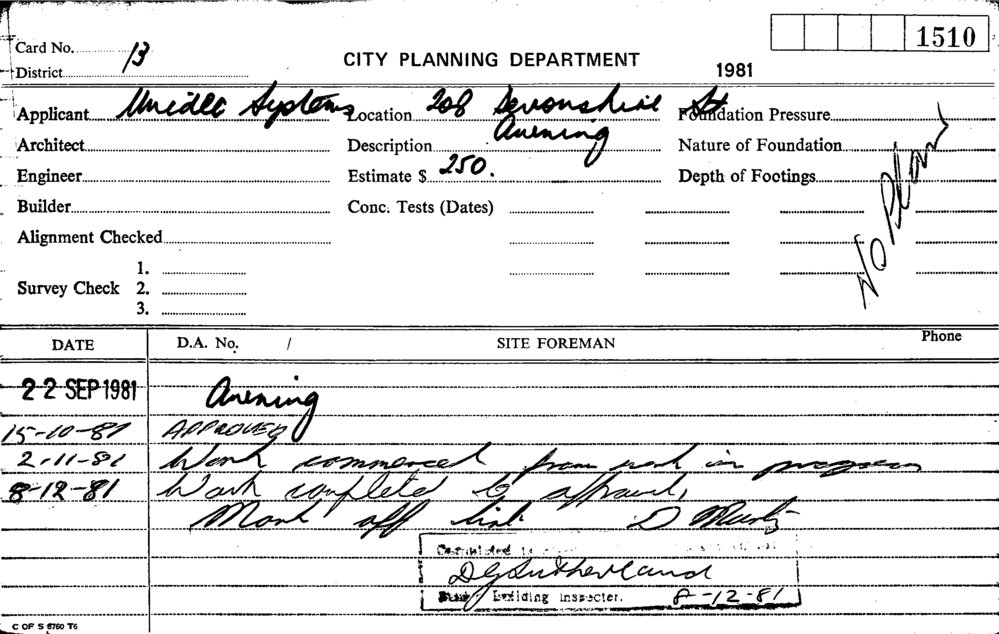 1510
Card No. 13
CITY PLANNING DEPARTMENT
District
1981
Applicant Unidec Systems Location 208 Devonshire St Foundation Pressure
Architect Description Awening Nature of Foundation
Engineer Estimate $ 250. Depth of Footings
Builder Conc. Tests (Dates)
No Plan
Alignment Checked
1.
Survey Check 2.
3.
DATE D.A. No. / SITE FOREMAN Phone
22 SEP 1981 Awening
15-10-81 APPROVED
2-11-81 Work commenced from work in progress
8-12-81 Work complete to approval,
Mark off link D
DG Sutherland
Building Inspector. 8-12-81
C OF S 6760 T6